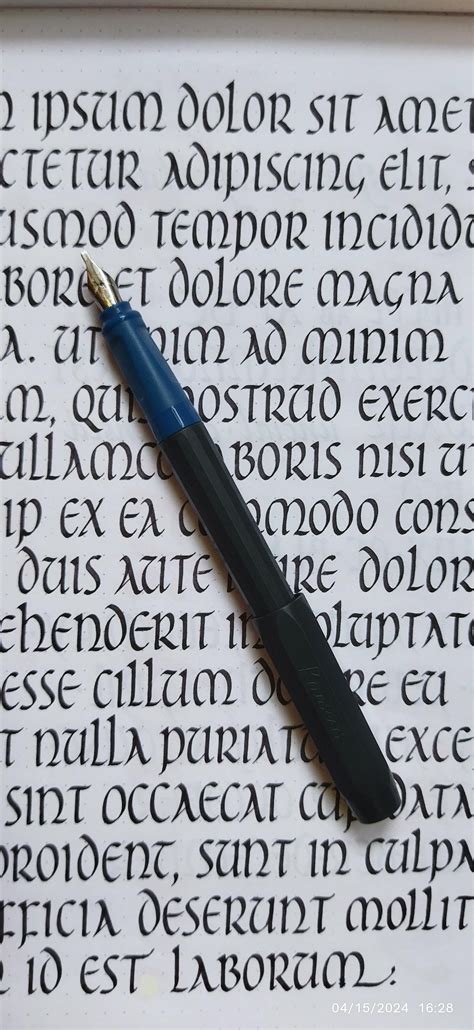 IPSUM DOLOR SIT AMET
CTETUR ADIPISCING ELIT,
USMOD TEMPOR INCIDIDU
BORE ET DOLORE MAGNA
A. UT ENIM AD MINIM
M, QUIS NOSTRUD EXERCI
ULLAMCO LABORIS NISI UT
IP EX EA COMMODO CONS
DUIS AUTE IRURE DOLOR
EHENDERIT IN VOLUPTAT
ESSE CILLUM DOLORE EU
T NULLA PURIATUR EXCE
SINT OCCAECAT CUPIDATA
PROIDENT, SUNT IN CULPA
FFICIA DESERUNT MOLLIT
ID EST LABORUM.
04/15/2024 16:28